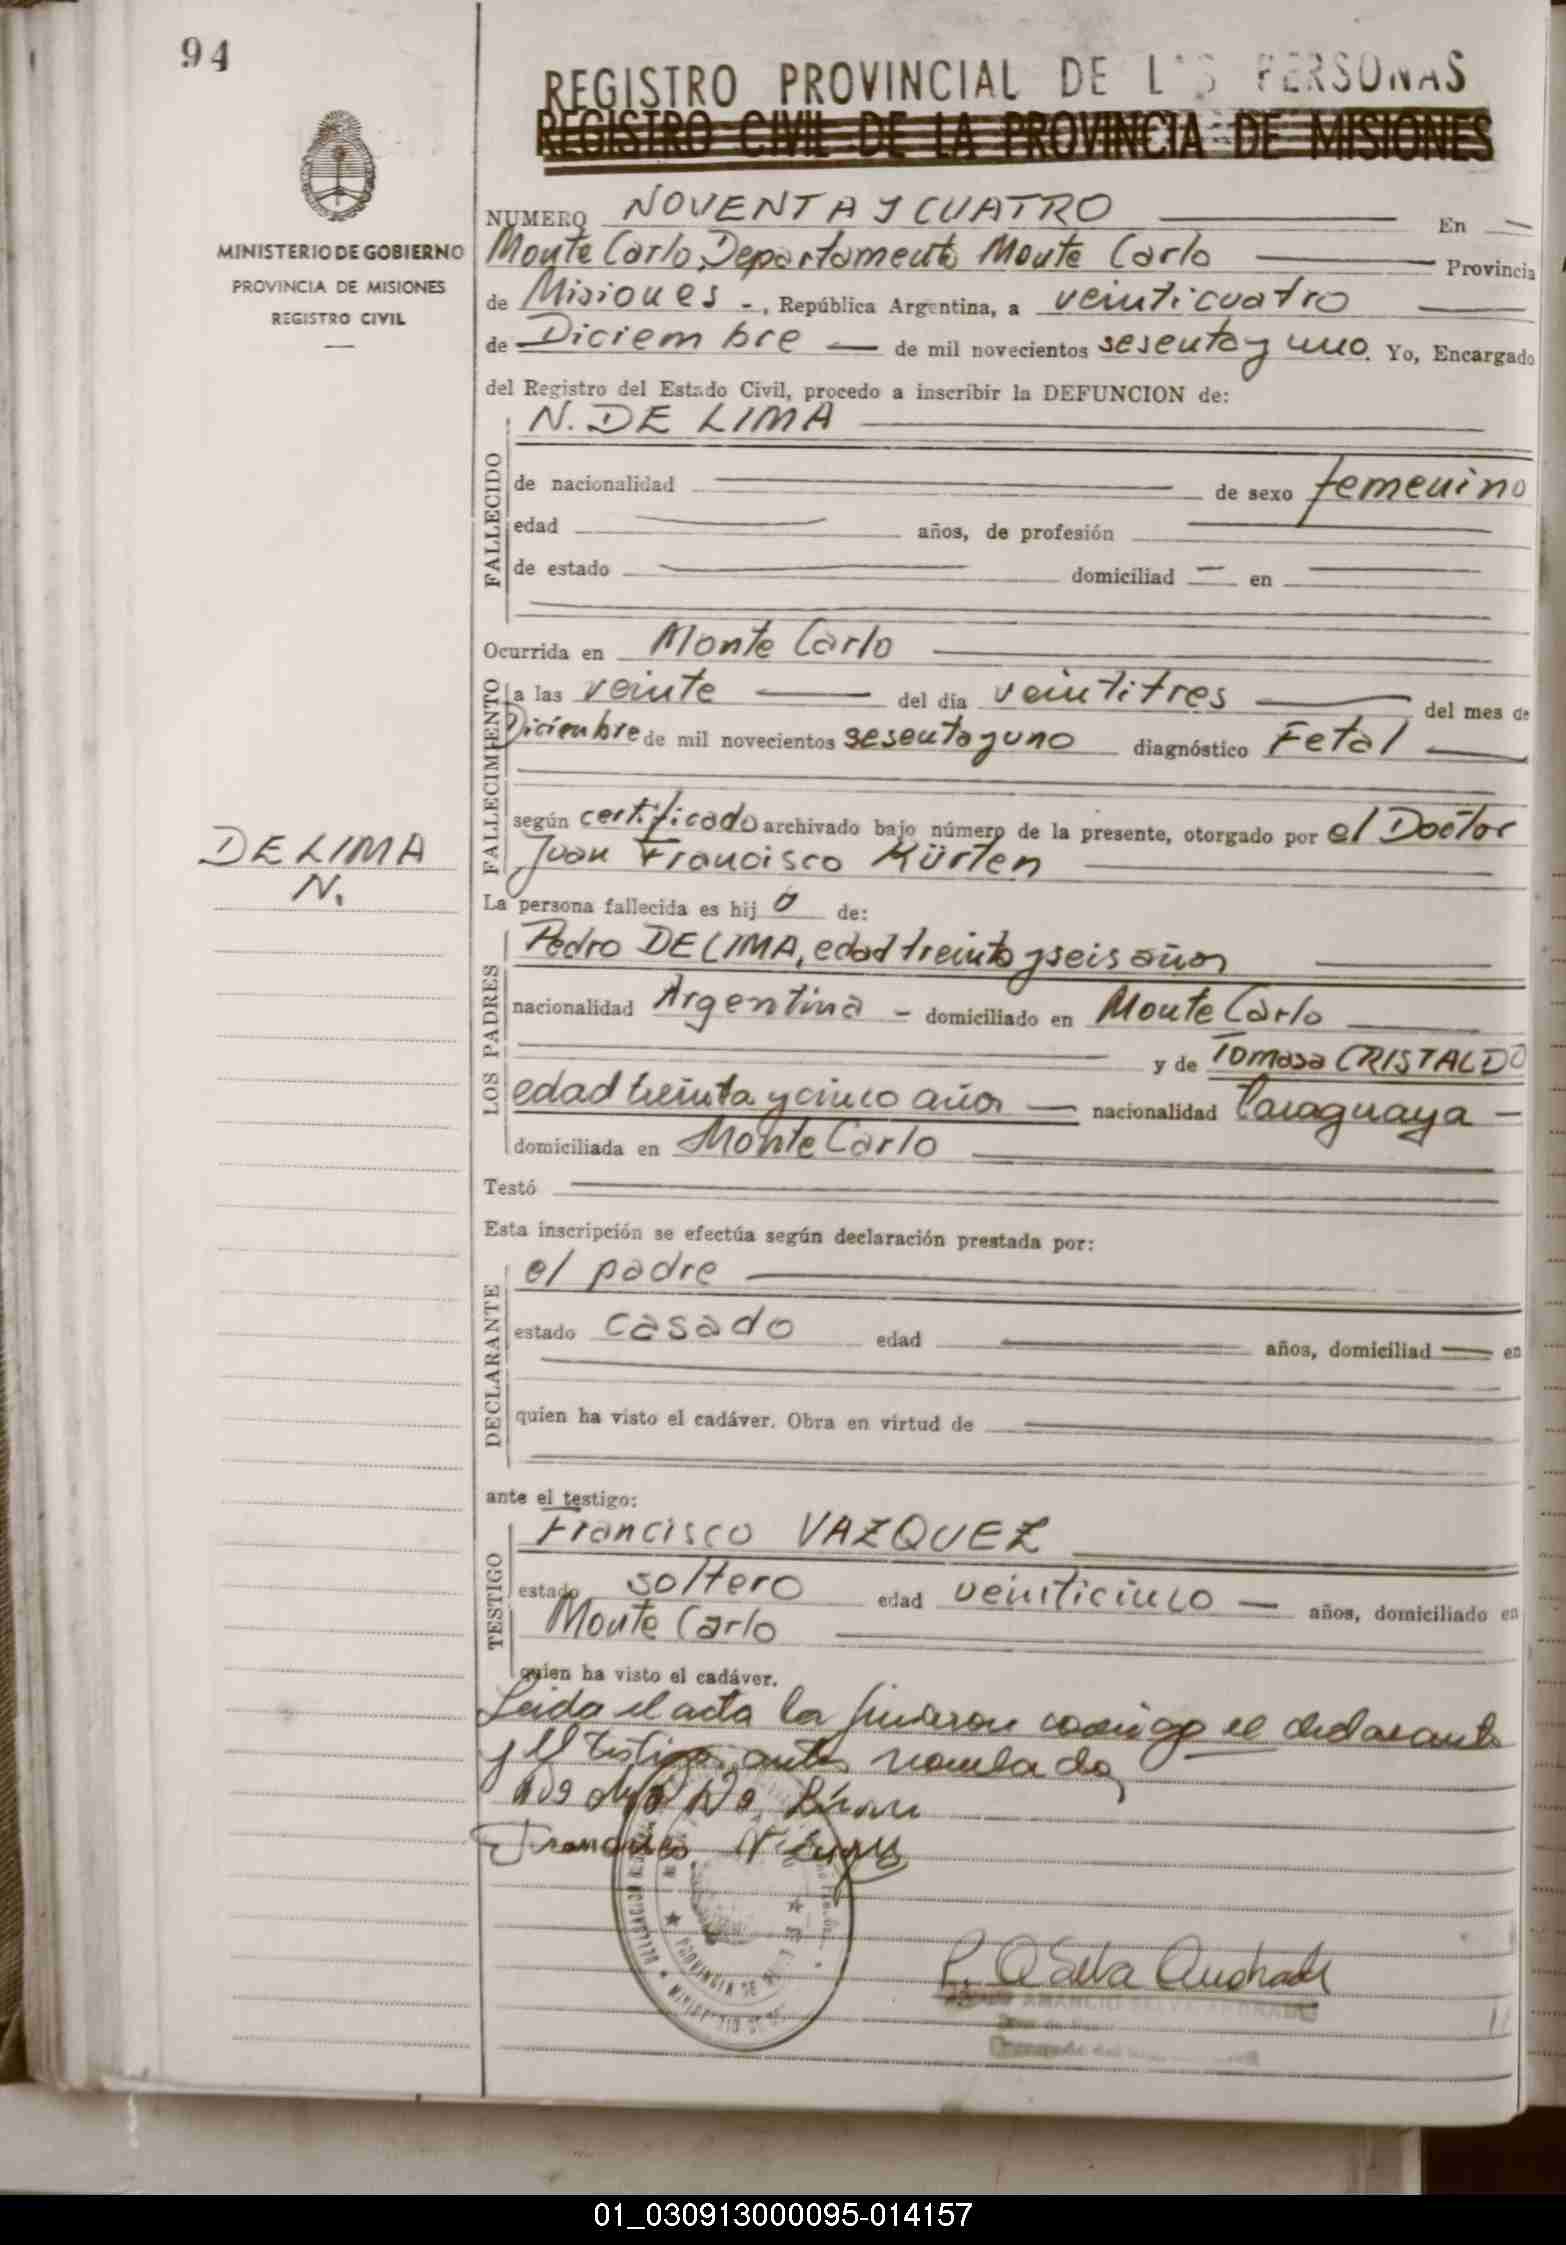 94
REGISTRO PROVINCIAL DE LAS PERSONAS
REGISTRO CIVIL DE LA PROVINCIA DE MISIONES
MINISTERIO DE GOBIERNO
PROVINCIA DE MISIONES
REGISTRO CIVIL
NUMERO NOVENTA Y CUATRO En
Monte Carlo, Departamento Monte Carlo Provincia
de Misiones -, República Argentina, a veinticuatro
de Diciembre de mil novecientos sesenta y uno. Yo, Encargado
del Registro del Estado Civil, procedo a inscribir la DEFUNCION de:
FALLECIDO
N. DE LIMA
de nacionalidad de sexo femenino
edad años, de profesión
de estado domiciliad en
Ocurrida en Monte Carlo
FALLECIMIENTO
a las veinte del día veintitres del mes de
Diciembre de mil novecientos sesenta y uno diagnóstico Fetal
según certificado archivado bajo número de la presente, otorgado por el Doctor
Juan Francisco Kürten
DE LIMA
N.
La persona fallecida es hij a de:
LOS PADRES
Pedro DE LIMA, edad treinta y seis años
nacionalidad Argentina - domiciliado en Monte Carlo
y de Tomasa CRISTALDO
edad treinta y cinco años nacionalidad Paraguaya -
domiciliada en Monte Carlo
Testó
Esta inscripción se efectúa según declaración prestada por:
DECLARANTE
el padre
estado casado edad años, domiciliad en
quien ha visto el cadáver. Obra en virtud de
ante el testigo:
TESTIGO
Francisco VAZQUEZ
estado soltero edad veinticinco años, domiciliado en
Monte Carlo
quien ha visto el cadáver.
Leida el acta la firmaron conmigo el declarante
y el testigo antes nombrado
Francisco
PROVINCIA DE
P. A Selva Andrade
AMANCIO SELVA ANDRADE
01_030913000095-014157